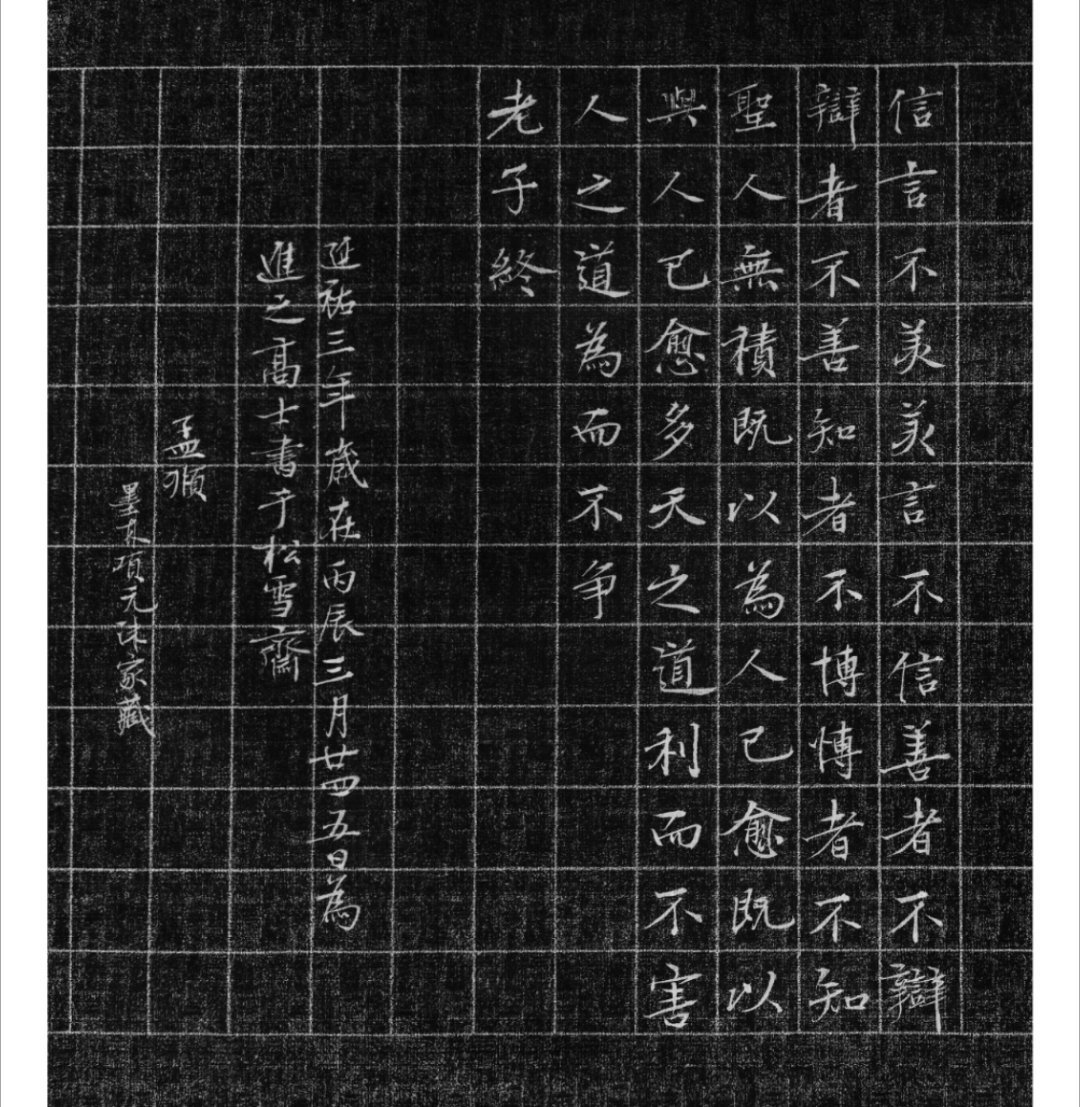 信言不美美言不信善者不辯
辯者不善知者不博博者不知
聖人無積既以為人已愈既以
與人已愈多天之道利而不害
人之道為而不争
老子終
延祐三年歲在丙辰三月廿四五日為
進之髙士書于松雪齋
孟頫
墨林項元汴家藏